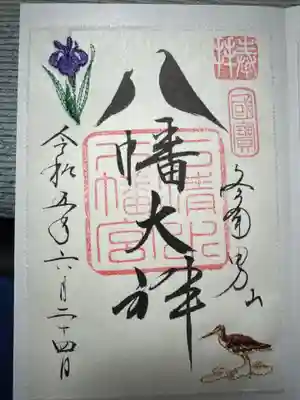 奉拝
國寶
男山
八幡大神
石清水
八幡宮
令和五年六月二十四日